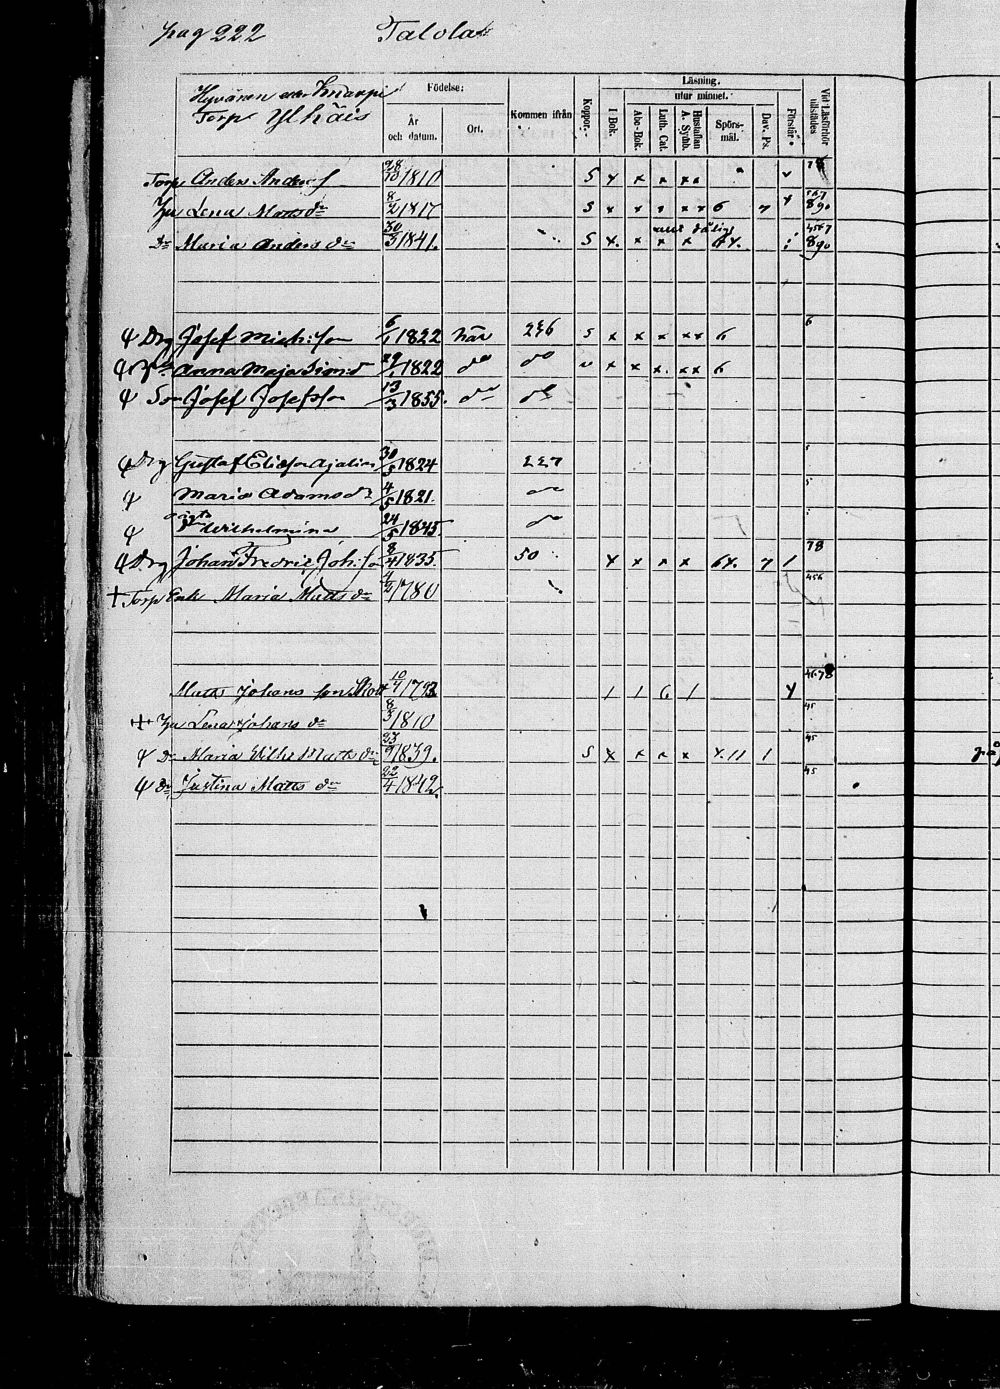 pag 222 Talola
Hyvänen eller Knaapi
Torp Ylhäis
Födelse:
År och datum.
Ort.
Kommen ifrån
Koppor.
Läsning.
utur minnet.
I Bok.
Abc-Bok.
Luth. Cat.
Hustaflan A. Symb.
Spörsmål.
Dav. Ps.
Förstår.
Vid Läsförhör tillstädes
Torp Anders Anders 28/10 1810 S x x x xx x
Hu Lena Matts dr 8/2 1817 S x x x x x 6 7 x 567 890
Dr Maria Anders dr 30/3 1841. S x. x x x 6x. 4567 890
Drg Josef Mich:son 6/1 1822 här 236 S x x x xx 6 6
Anna Maja Sim:d 29/1 1822 do do v x x x. xx 6
Son Josef Josefsson 13/3 1855. do do
Drg Gustaf Eliæson 30/5 1824 227
Maria Adams dr 4/5 1821. do
Wilhelmina 24/5 1845. do
Drg Johan Fredric Joh:so 8/4 1835. 50 x x x x 6x. 7 1 78
Torp Enk Maria Matts dr 4/2 1780 456
Matts Johans son 10/7 1793 1 1 6 1 4678
Hu Lena Johans dr 8/3 1810 45
Dr Maria Wilh: Matts dr 23/9 1839. S x x x x x.11 1 45
Dr Justina Matts dr 22/4 1842. 45